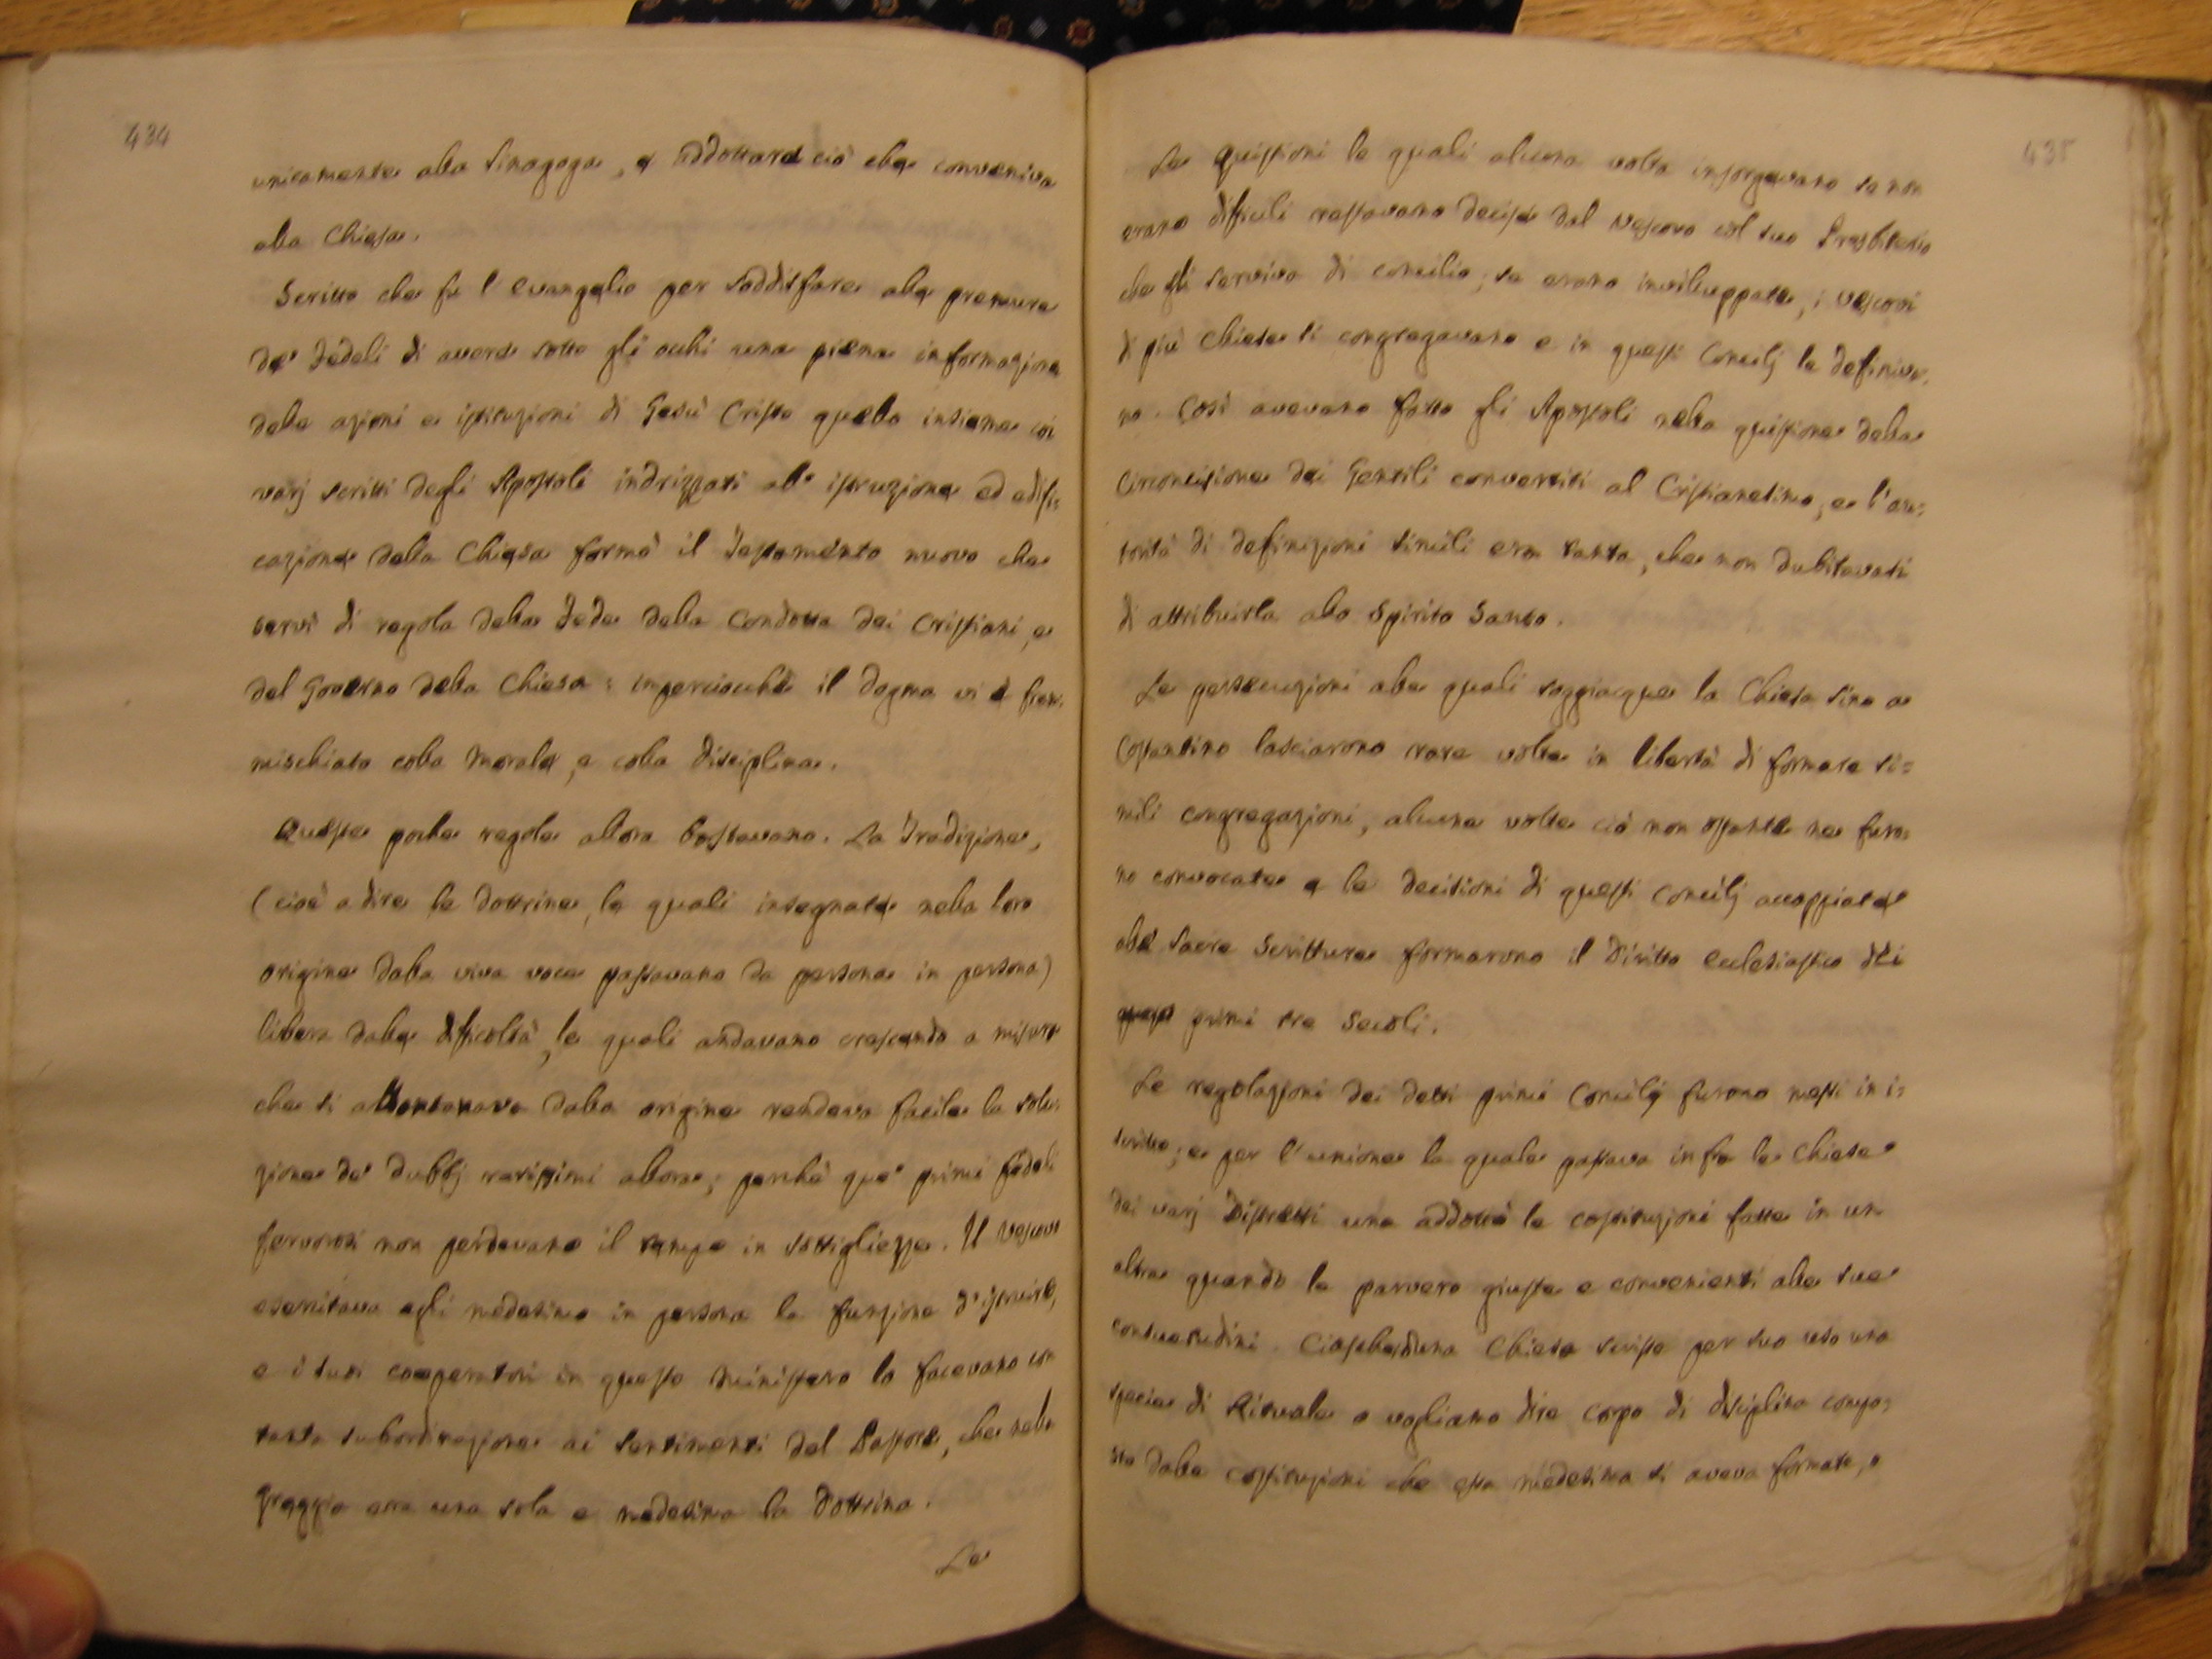 434
unicamente alla Sinagoga, e addottare ciò che conveniva
alla Chiesa.
Scritto che fu l'Evangelio per soddisfare alle premure
de' Fedeli di avere sotto gli occhi una piena informazione
delle azioni e istituzioni di Gesù Cristo quello insieme coi
varj scritti degli Apostoli indrizzati all'istruzione ed edifi:
cazione della Chiesa formò il Testamento nuovo che
servì di regola della Fede della Condotta dei Cristiani, e
del Governo della Chiesa: imperciocché il Dogma vi è fram:
mischiato colla Morale, e colla Disciplina.
Queste poche regole allora bastavano. La Tradizione,
(cioè a dire le dottrine, le quali insegnate nella loro
origine dalla viva voce passavano da persona in persona)
libera dalle dificoltà, le quali andavano crescendo a misura
che si allontanava dalla origine rendeva facile la solu:
zione de' dubbj rarissimi allora; perché que' primi fedeli
fervorosi non perdevano il tempo in sottigliezze. Il Vescovo
esercitava egli medesimo in persona la funzione d'istruire,
e i suoi cooperatori in questo Ministero lo facevano con
tanta subordinazione ai sentimenti del Pastore, che nella
Greggia era una sola e medesima la Dottrina.
Le
435
Le Quistioni le quali alcuna volta insorgevano se non
erano difficili restavano decise dal Vescovo col suo Presbiterio
che gli serviva di concilio; se erano inviluppate, i Vescovi
di più Chiese si congregavano e in questi Concilj le definiva:
no. Così avevano fatto gli Apostoli nella quistione della
Circoncisione dei Gentili convertiti al Cristianesimo, e l'au:
torità di definizioni simili era tanta, che non dubitavasi
di attribuirla allo Spirito Santo.
Le persecuzioni alle quali soggiacque la Chiesa sino a
Costantino lasciarono rare volte in libertà di formare si=
mili congregazioni, alcune volte ciò non ostante ne furo:
no convocate e le decisioni di questi Concilj accoppiate
alle Sacre Scritture formarono il Diritto Ecclesiastico dei
primi tre Secoli.
Le regolazioni dei detti primi Concilj furono messi in i:
scritto; e per l'unione la quale passava infra le Chiese
dei varj Distretti una addottò le costituzioni fatte in un
altra quando le parvero giuste e convenienti alle sue
consuetudini. Ciascheduna Chiesa scrisse per suo uso una
specie di Rituale o vogliamo dire corpo di disciplina compo:
sto dalle costituzioni che essa medesima si aveva formate, o